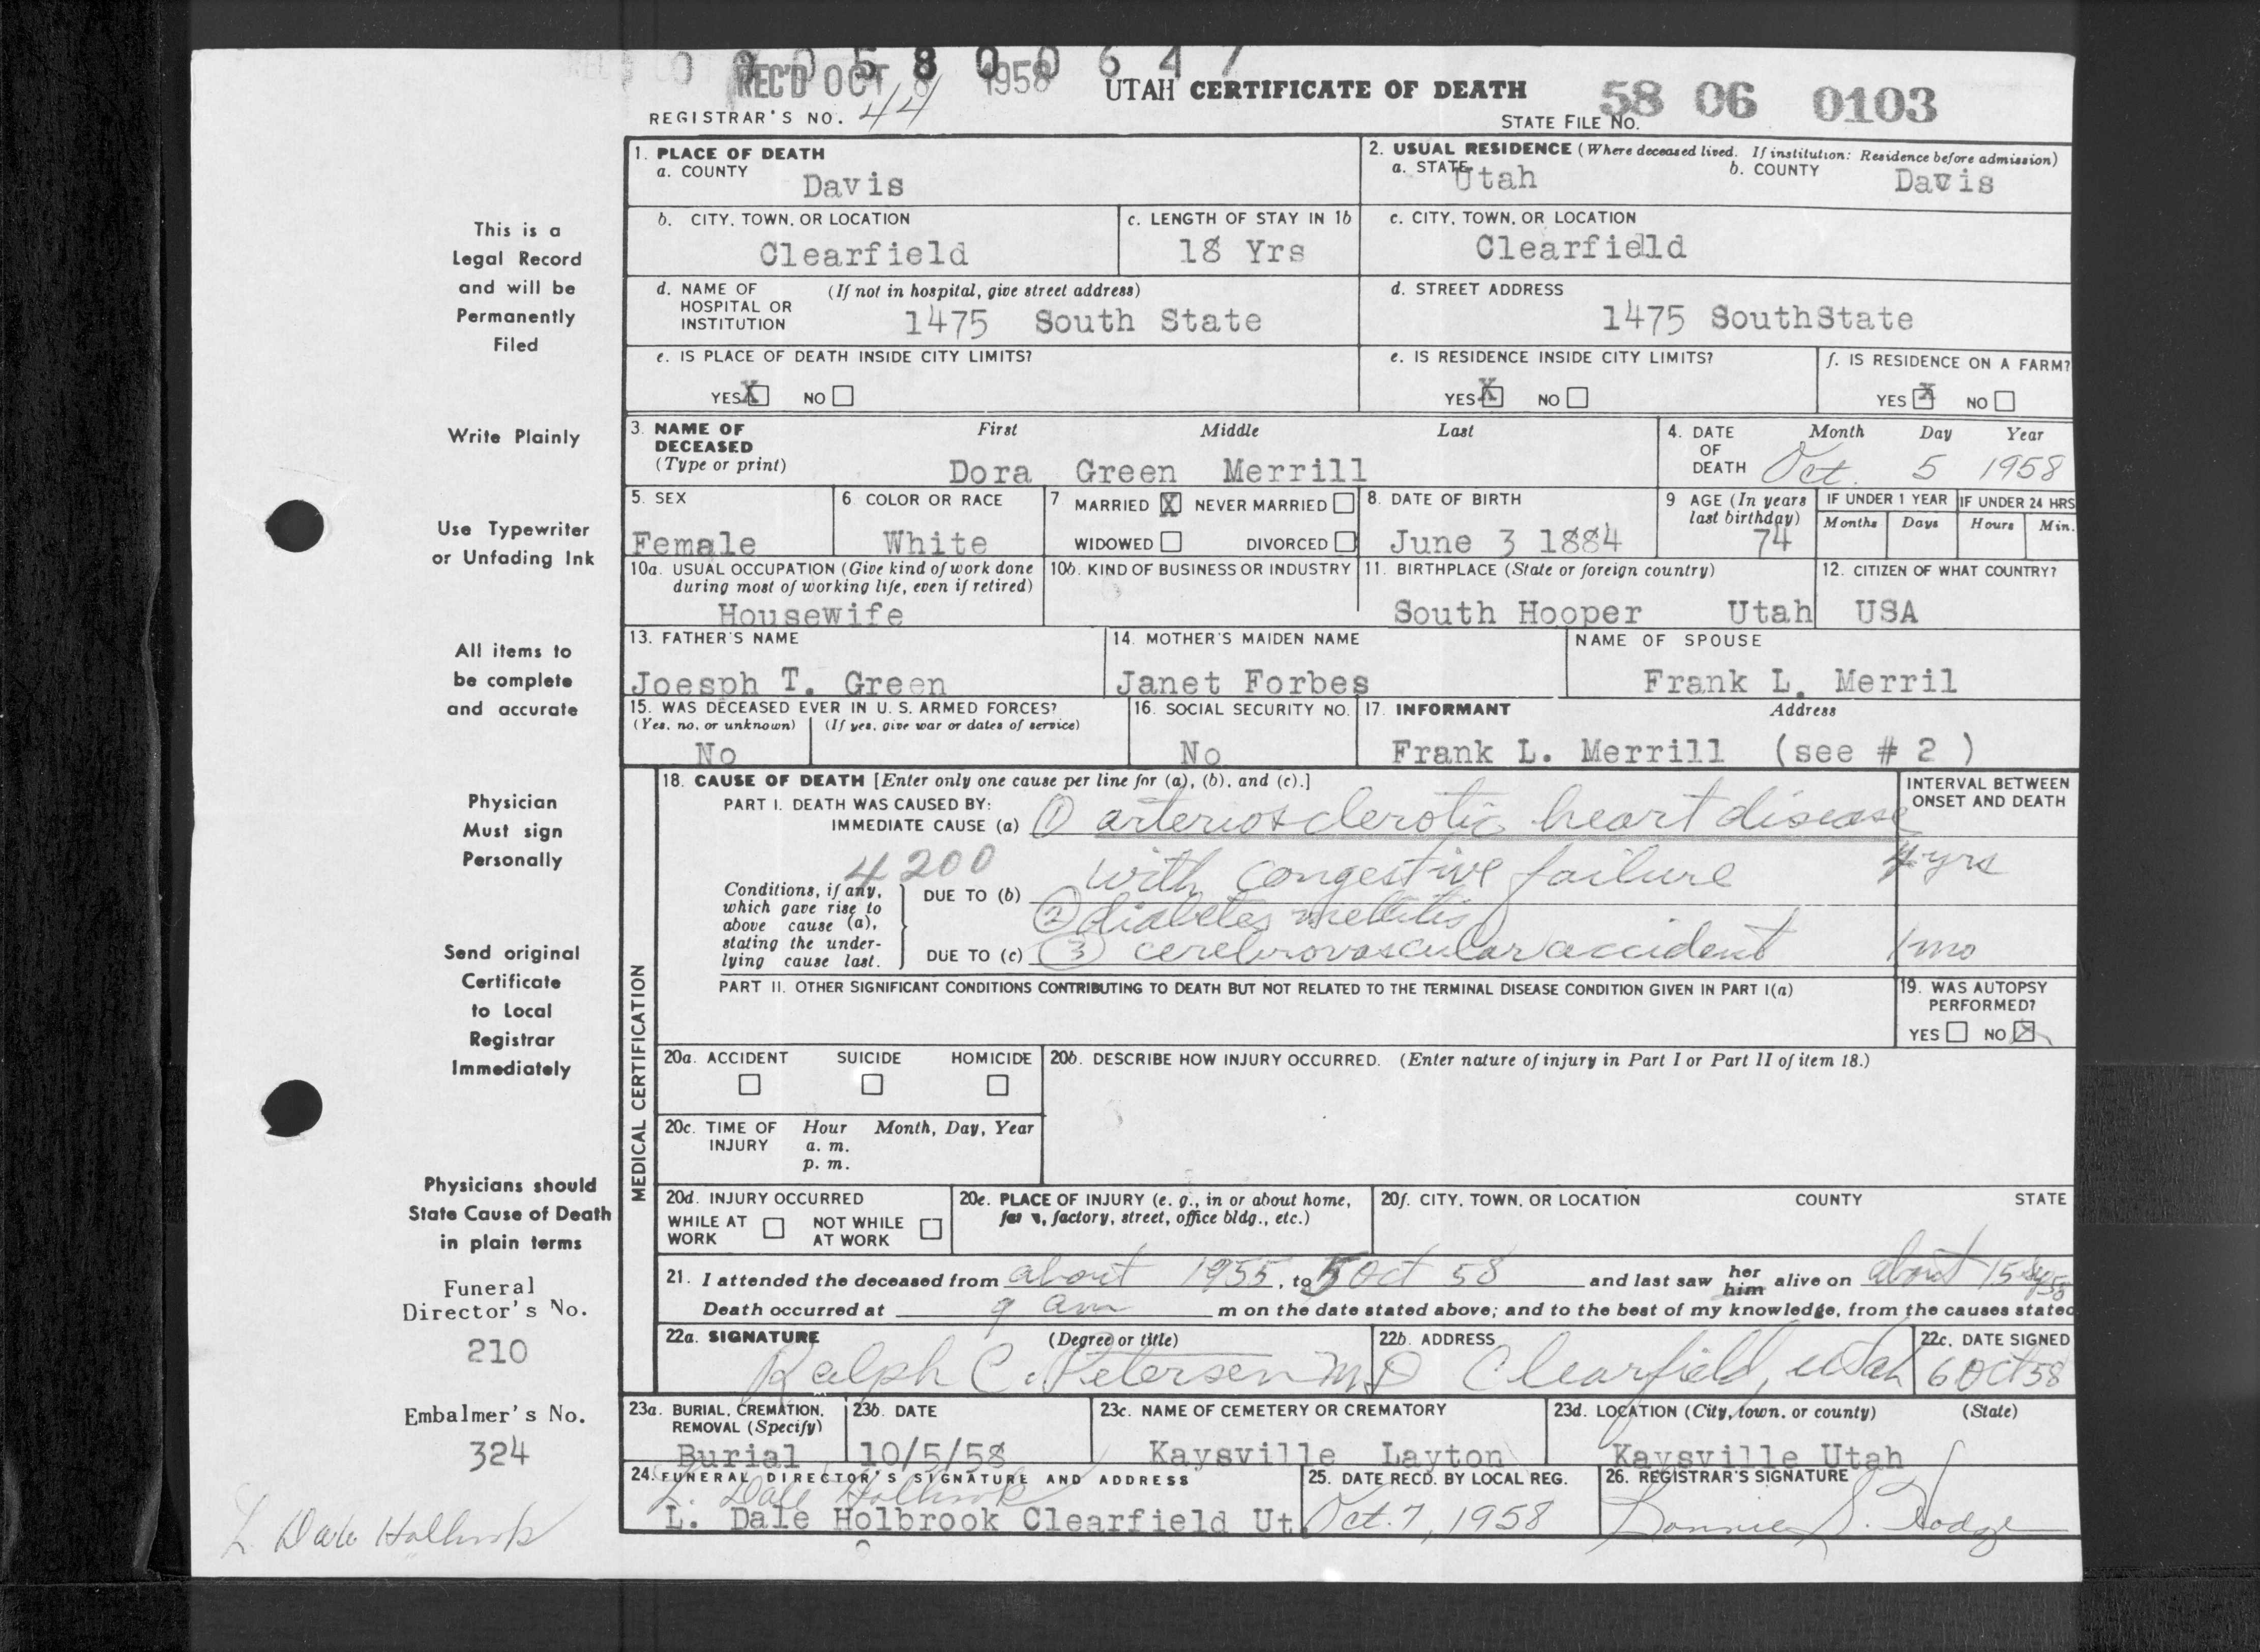 0 0 0 5 8 0 0 6 4 7
REC'D OCT 8 1958
UTAH CERTIFICATE OF DEATH
58 06 0103
REGISTRAR'S NO. 44
STATE FILE NO.
1. PLACE OF DEATH
a. COUNTY Davis
2. USUAL RESIDENCE (Where deceased lived. If institution: Residence before admission)
a. STATE Utah b. COUNTY Davis
b. CITY, TOWN, OR LOCATION Clearfield
c. LENGTH OF STAY IN 1b 18 Yrs
c. CITY, TOWN, OR LOCATION Clearfield
d. NAME OF HOSPITAL OR INSTITUTION (If not in hospital, give street address) 1475 South State
d. STREET ADDRESS 1475 SouthState
e. IS PLACE OF DEATH INSIDE CITY LIMITS?
YES X NO
e. IS RESIDENCE INSIDE CITY LIMITS?
YES X NO
f. IS RESIDENCE ON A FARM?
YES X NO
3. NAME OF DECEASED (Type or print) First Middle Last
Dora Green Merrill
4. DATE OF DEATH Month Day Year
Oct. 5 1958
5. SEX Female
6. COLOR OR RACE White
7 MARRIED X NEVER MARRIED
WIDOWED DIVORCED
8. DATE OF BIRTH June 3 1884
9 AGE (In years last birthday) 74
IF UNDER 1 YEAR Months Days
IF UNDER 24 HRS Hours Min.
10a. USUAL OCCUPATION (Give kind of work done during most of working life, even if retired)
Housewife
10b. KIND OF BUSINESS OR INDUSTRY
11. BIRTHPLACE (State or foreign country)
South Hooper Utah
12. CITIZEN OF WHAT COUNTRY?
USA
13. FATHER'S NAME
Joesph T. Green
14. MOTHER'S MAIDEN NAME
Janet Forbes
NAME OF SPOUSE
Frank L. Merril
15. WAS DECEASED EVER IN U. S. ARMED FORCES?
(Yes, no, or unknown) (If yes, give war or dates of service)
No
16. SOCIAL SECURITY NO.
No
17. INFORMANT Address
Frank L. Merrill (see # 2 )
MEDICAL CERTIFICATION
18. CAUSE OF DEATH [Enter only one cause per line for (a), (b), and (c).]
INTERVAL BETWEEN ONSET AND DEATH
PART I. DEATH WAS CAUSED BY:
IMMEDIATE CAUSE (a) ① arteriosclerotic heart disease
4200
Conditions, if any, which gave rise to above cause (a), stating the underlying cause last.
DUE TO (b) with congestive failure 4 yrs
② diabetes mellitis
DUE TO (c) ③ cerebrovascular accident 1 mo
PART II. OTHER SIGNIFICANT CONDITIONS CONTRIBUTING TO DEATH BUT NOT RELATED TO THE TERMINAL DISEASE CONDITION GIVEN IN PART I(a)
19. WAS AUTOPSY PERFORMED?
YES NO X
20a. ACCIDENT SUICIDE HOMICIDE
20b. DESCRIBE HOW INJURY OCCURRED. (Enter nature of injury in Part I or Part II of item 18.)
20c. TIME OF INJURY Hour a. m. p. m. Month, Day, Year
20d. INJURY OCCURRED
WHILE AT WORK NOT WHILE AT WORK
20e. PLACE OF INJURY (e. g., in or about home, farm, factory, street, office bldg., etc.)
20f. CITY, TOWN, OR LOCATION COUNTY STATE
21. I attended the deceased from about 1955, to 5 Oct 58 and last saw her him alive on about 15 Sep 58
Death occurred at 9 am m on the date stated above; and to the best of my knowledge, from the causes stated
22a. SIGNATURE (Degree or title)
Ralph C. Petersen MD
22b. ADDRESS
Clearfield, Utah
22c. DATE SIGNED
6 Oct 58
23a. BURIAL, CREMATION, REMOVAL (Specify)
Burial
23b. DATE
10/5/58
23c. NAME OF CEMETERY OR CREMATORY
Kaysville Layton
23d. LOCATION (City, town, or county) (State)
Kaysville Utah
24. FUNERAL DIRECTOR'S SIGNATURE AND ADDRESS
L. Dale Holbrook
L. Dale Holbrook Clearfield Ut
25. DATE RECD. BY LOCAL REG.
Oct. 7, 1958
26. REGISTRAR'S SIGNATURE
Bonnie S. Hodge
This is a
Legal Record
and will be
Permanently
Filed
Write Plainly
Use Typewriter
or Unfading Ink
All items to
be complete
and accurate
Physician
Must sign
Personally
Send original
Certificate
to Local
Registrar
Immediately
Physicians should
State Cause of Death
in plain terms
Funeral
Director's No.
210
Embalmer's No.
324
L. Dale Holbrook